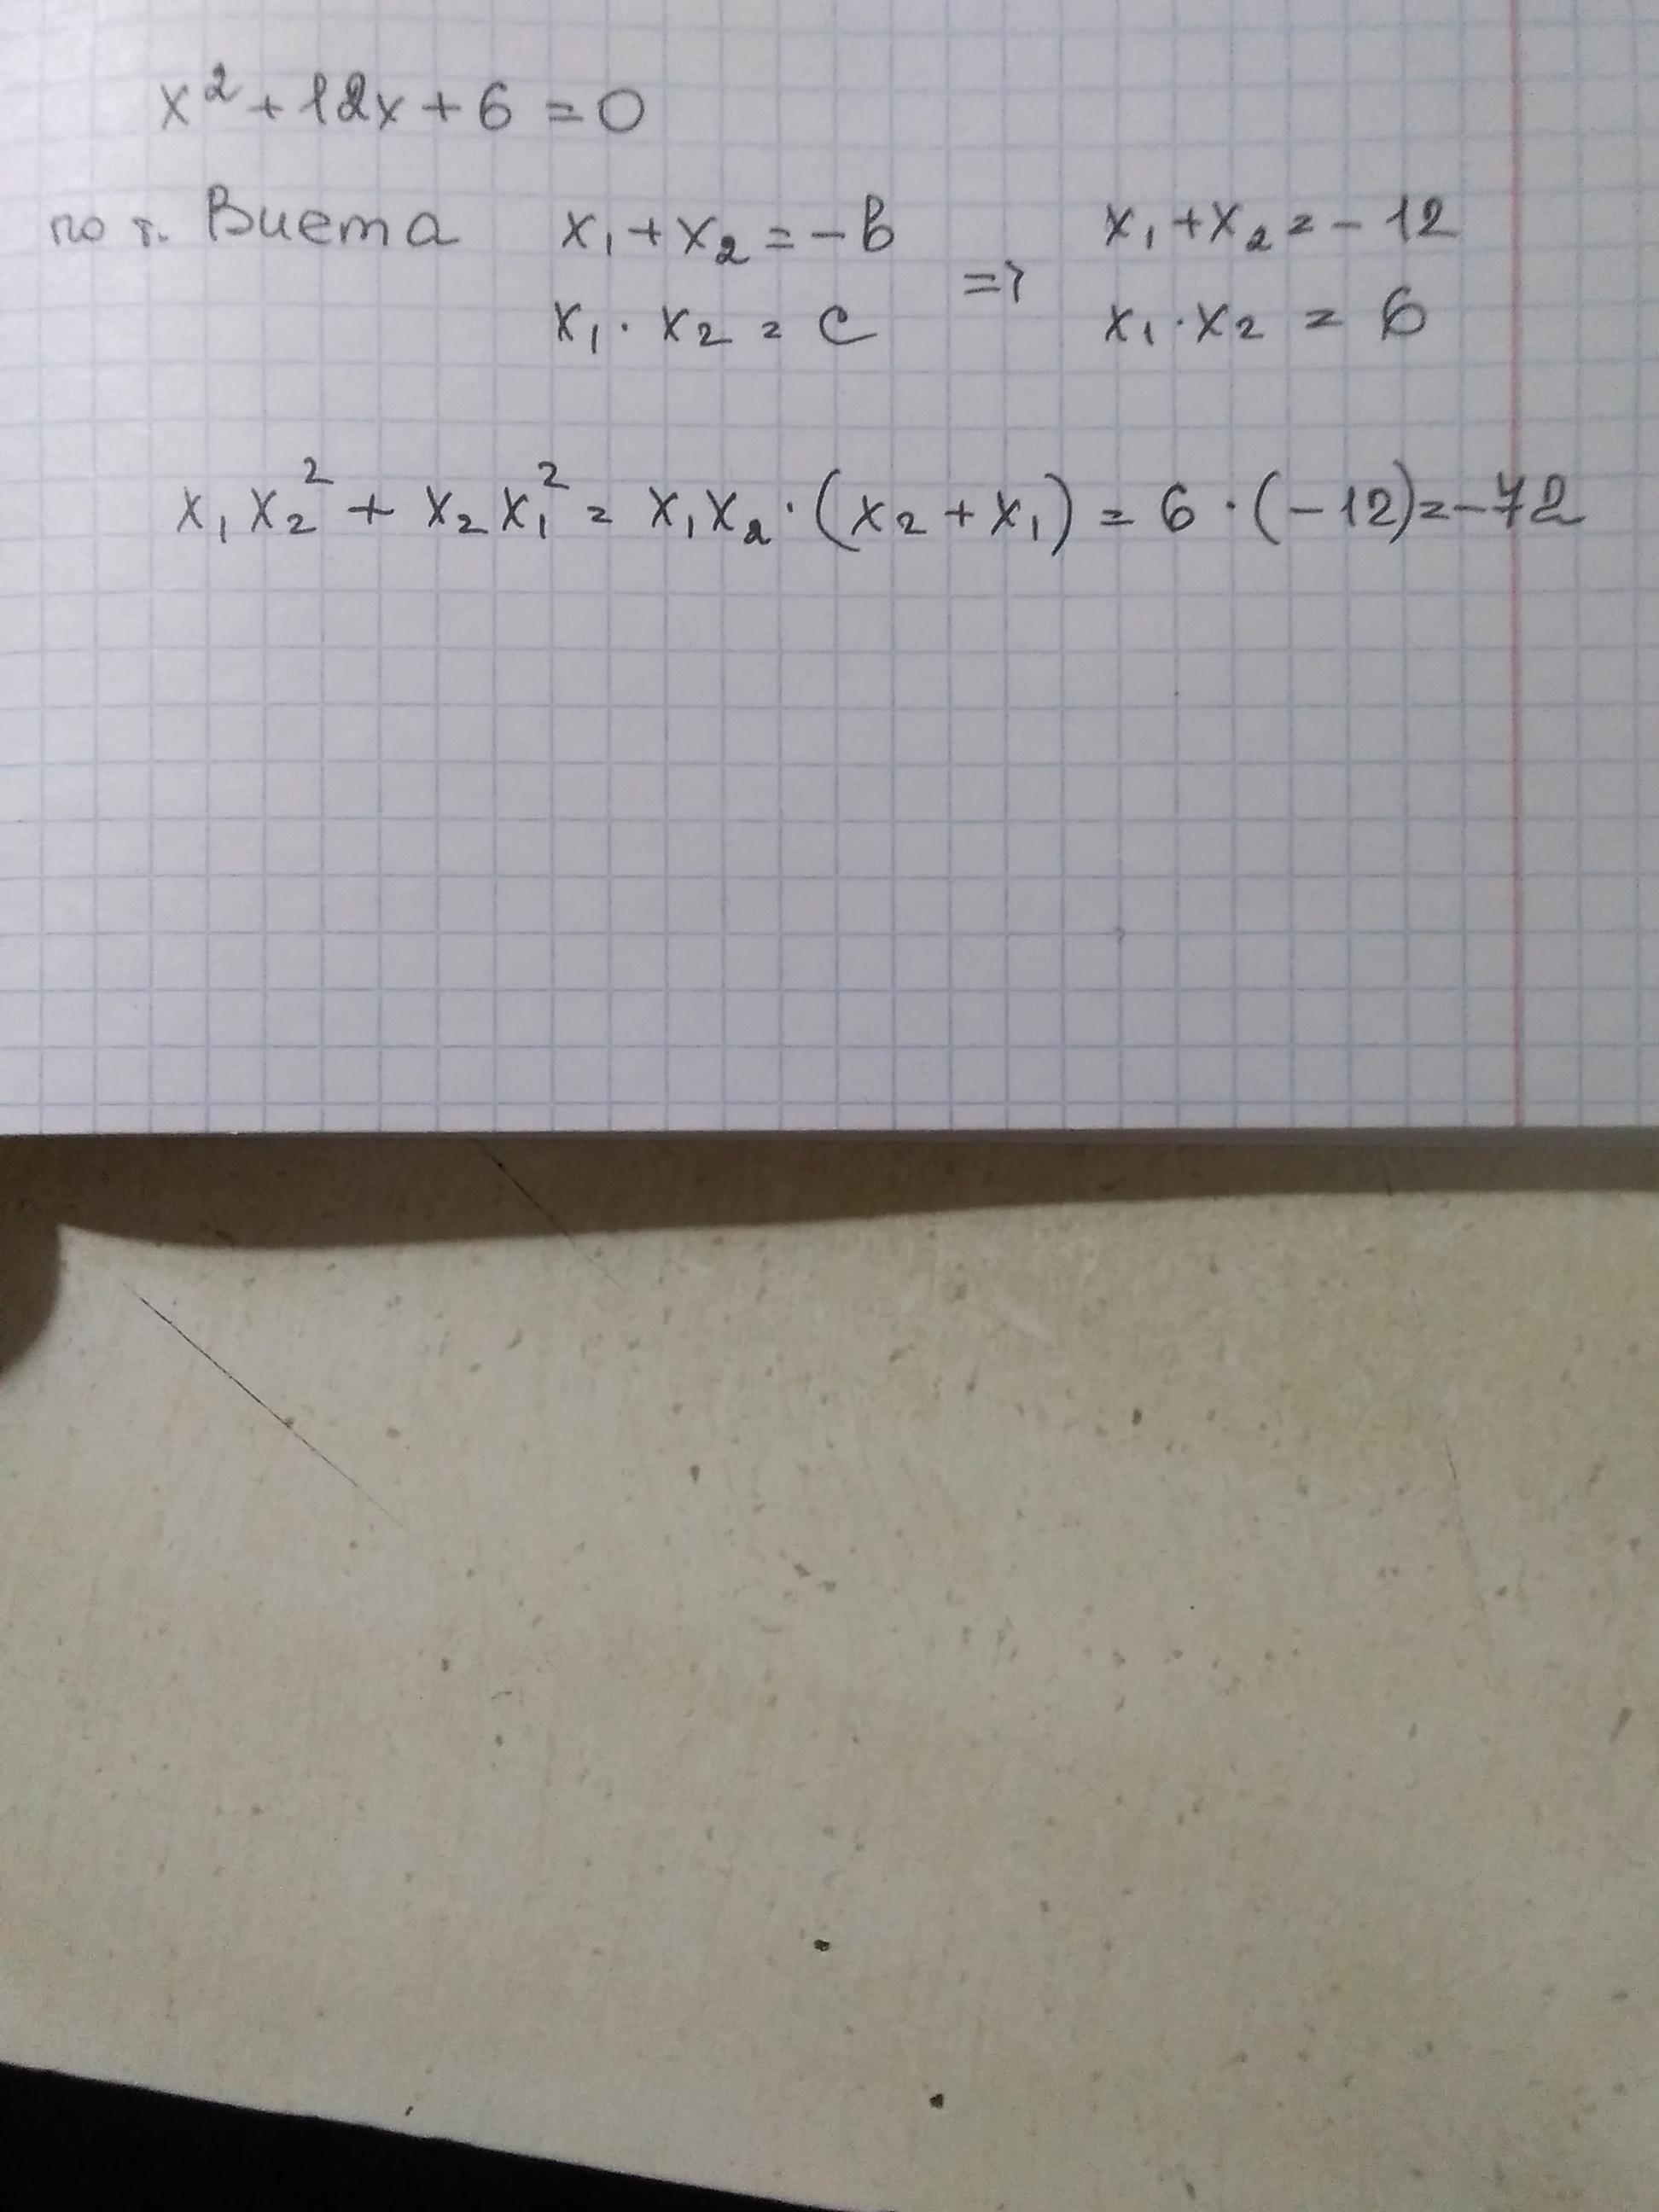 x² + 12x + 6 = 0
по т. Виета x₁ + x₂ = -b => x₁ + x₂ = -12
x₁ · x₂ = c x₁ · x₂ = 6
x₁x₂² + x₂x₁² = x₁x₂ · (x₂ + x₁) = 6 · (-12) = -72